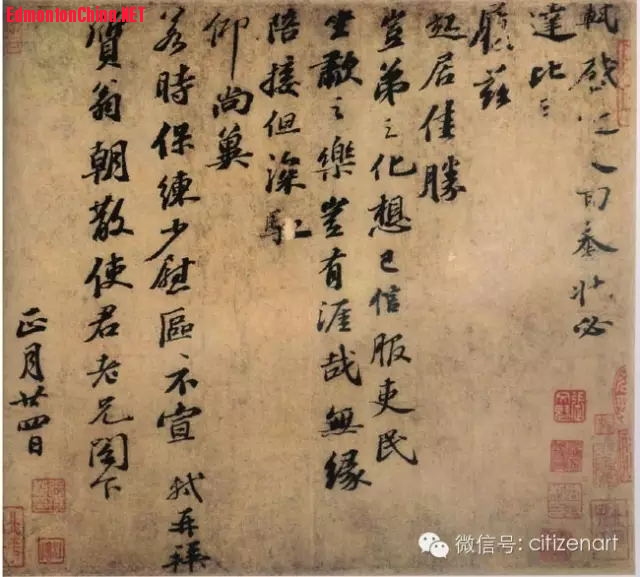 EdmontonChina.NET
軾啓近人回奉狀必
達比〻
履茲
起居佳勝
豈弟之化想已信服吏民
坐歗之樂豈有涯哉無緣
陪接但深馳
仰尚冀
若時保練少慰區〻不宣 軾再拜
質翁朝散使君老兄閣下
正月廿四日
微信号: citizenart